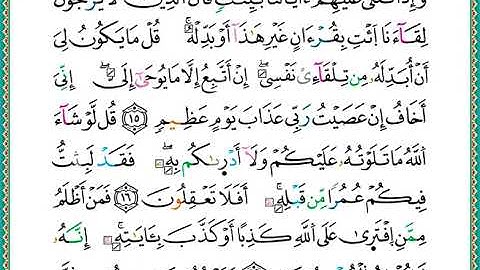 وَإِذَا تُتْلَىٰ عَلَيْهِمْ ءَايَاتُنَا بَيِّنَٰتٍ قَالَ ٱلَّذِينَ لَا يَرْجُونَ
لِقَآءَنَا ٱئْتِ بِقُرْءَانٍ غَيْرِ هَٰذَآ أَوْ بَدِّلْهُ ۚ قُلْ مَا يَكُونُ لِىٓ
أَنْ أُبَدِّلَهُۥ مِن تِلْقَآئِ نَفْسِىٓ ۖ إِنْ أَتَّبِعُ إِلَّا مَا يُوحَىٰٓ إِلَىَّ ۖ إِنِّىٓ
أَخَافُ إِنْ عَصَيْتُ رَبِّى عَذَابَ يَوْمٍ عَظِيمٍ ١٥ قُل لَّوْ شَآءَ
ٱللَّهُ مَا تَلَوْتُهُۥ عَلَيْكُمْ وَلَآ أَدْرَىٰكُم بِهِۦ ۖ فَقَدْ لَبِثْتُ
فِيكُمْ عُمُرًا مِّن قَبْلِهِۦٓ ۚ أَفَلَا تَعْقِلُونَ ١٦ فَمَنْ أَظْلَمُ
مِمَّنِ ٱفْتَرَىٰ عَلَى ٱللَّهِ كَذِبًا أَوْ كَذَّبَ بِـَٔايَٰتِهِۦٓ ۚ إِنَّهُۥ